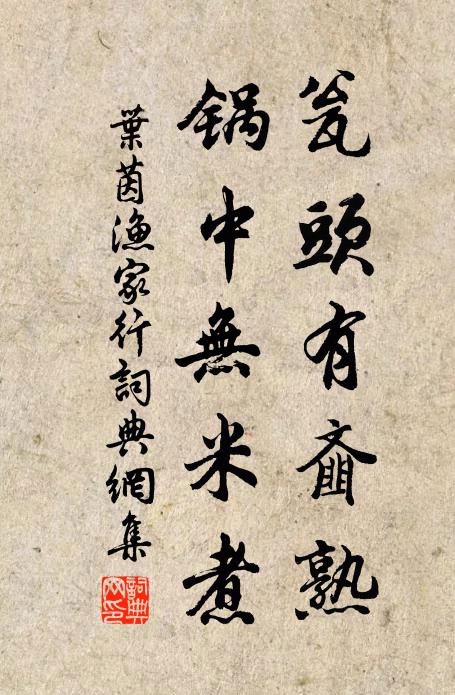 瓮頭有齑熟
锅中無米煮
葉茵漁家行詞典網集
詞典网印